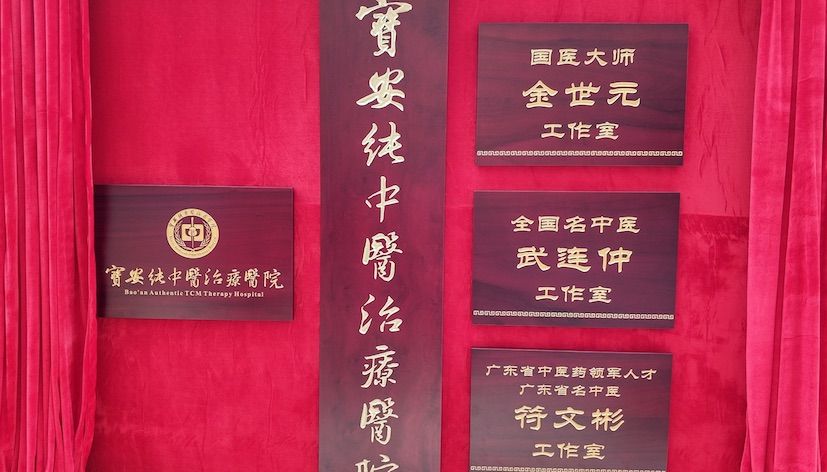 寶安纯中醫治療醫院
Bao'an Authentic TCM Therapy Hospital
寶安纯中醫治療醫院
国医大师
金世元
工作室
全国名中医
武连仲
工作室
广东省中医药领军人才
广东省名中医
符文彬
工作室